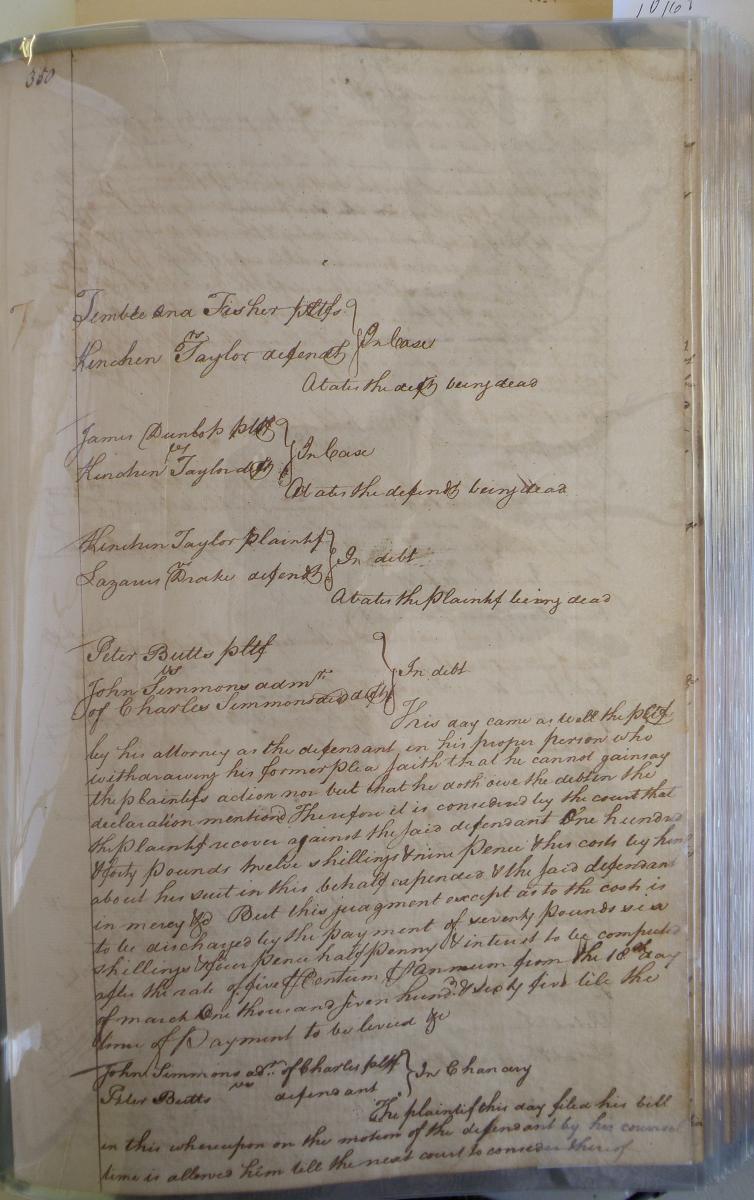 350
Timble and Fisher pltfs
vs } In Case
Kinchen Taylor defendt
Abates the deft being dead
James Dunlop pltf
vs } In Case
Kinchen Taylor deft
Abates the defendt being dead
Kinchen Taylor plaintf
vs } In debt
Lazarus Drake defendt
Abates the plaintf being dead
Peter Butts pltf
vs } In debt
John Simmons admtr
of Charles Simmons decd deft
This day came as well the pltf
by his attorney as the defendant in his proper person who
withdrawing his former plea saith that he cannot gainsay
the plaintifs action nor but that he doth owe the debt in the
declaration mentiond Therefore it is considered by the court that
the plaintif recover against the said defendant One hundred
& forty pounds twelve shillings & nine pence & his costs by him
about his suit in this behalf expended & the said defendant
in mercy &c But this judgment except as to the costs is
to be discharged by the payment of seventy pounds six
shillings & four pence half penny & interest to be computed
after the rate of five P Centum P annum from the 18th day
of march One thousand seven hundd & sixty five till the
time of Payment to be levied &c
John Simmons adr. of Charles pltf
vs } In Chancery
Peter Butts defendant
The plaintif this day filed his bill
in this whereupon on the motion of the defendant by his counsel
time is allowed him till the next court to consider thereof